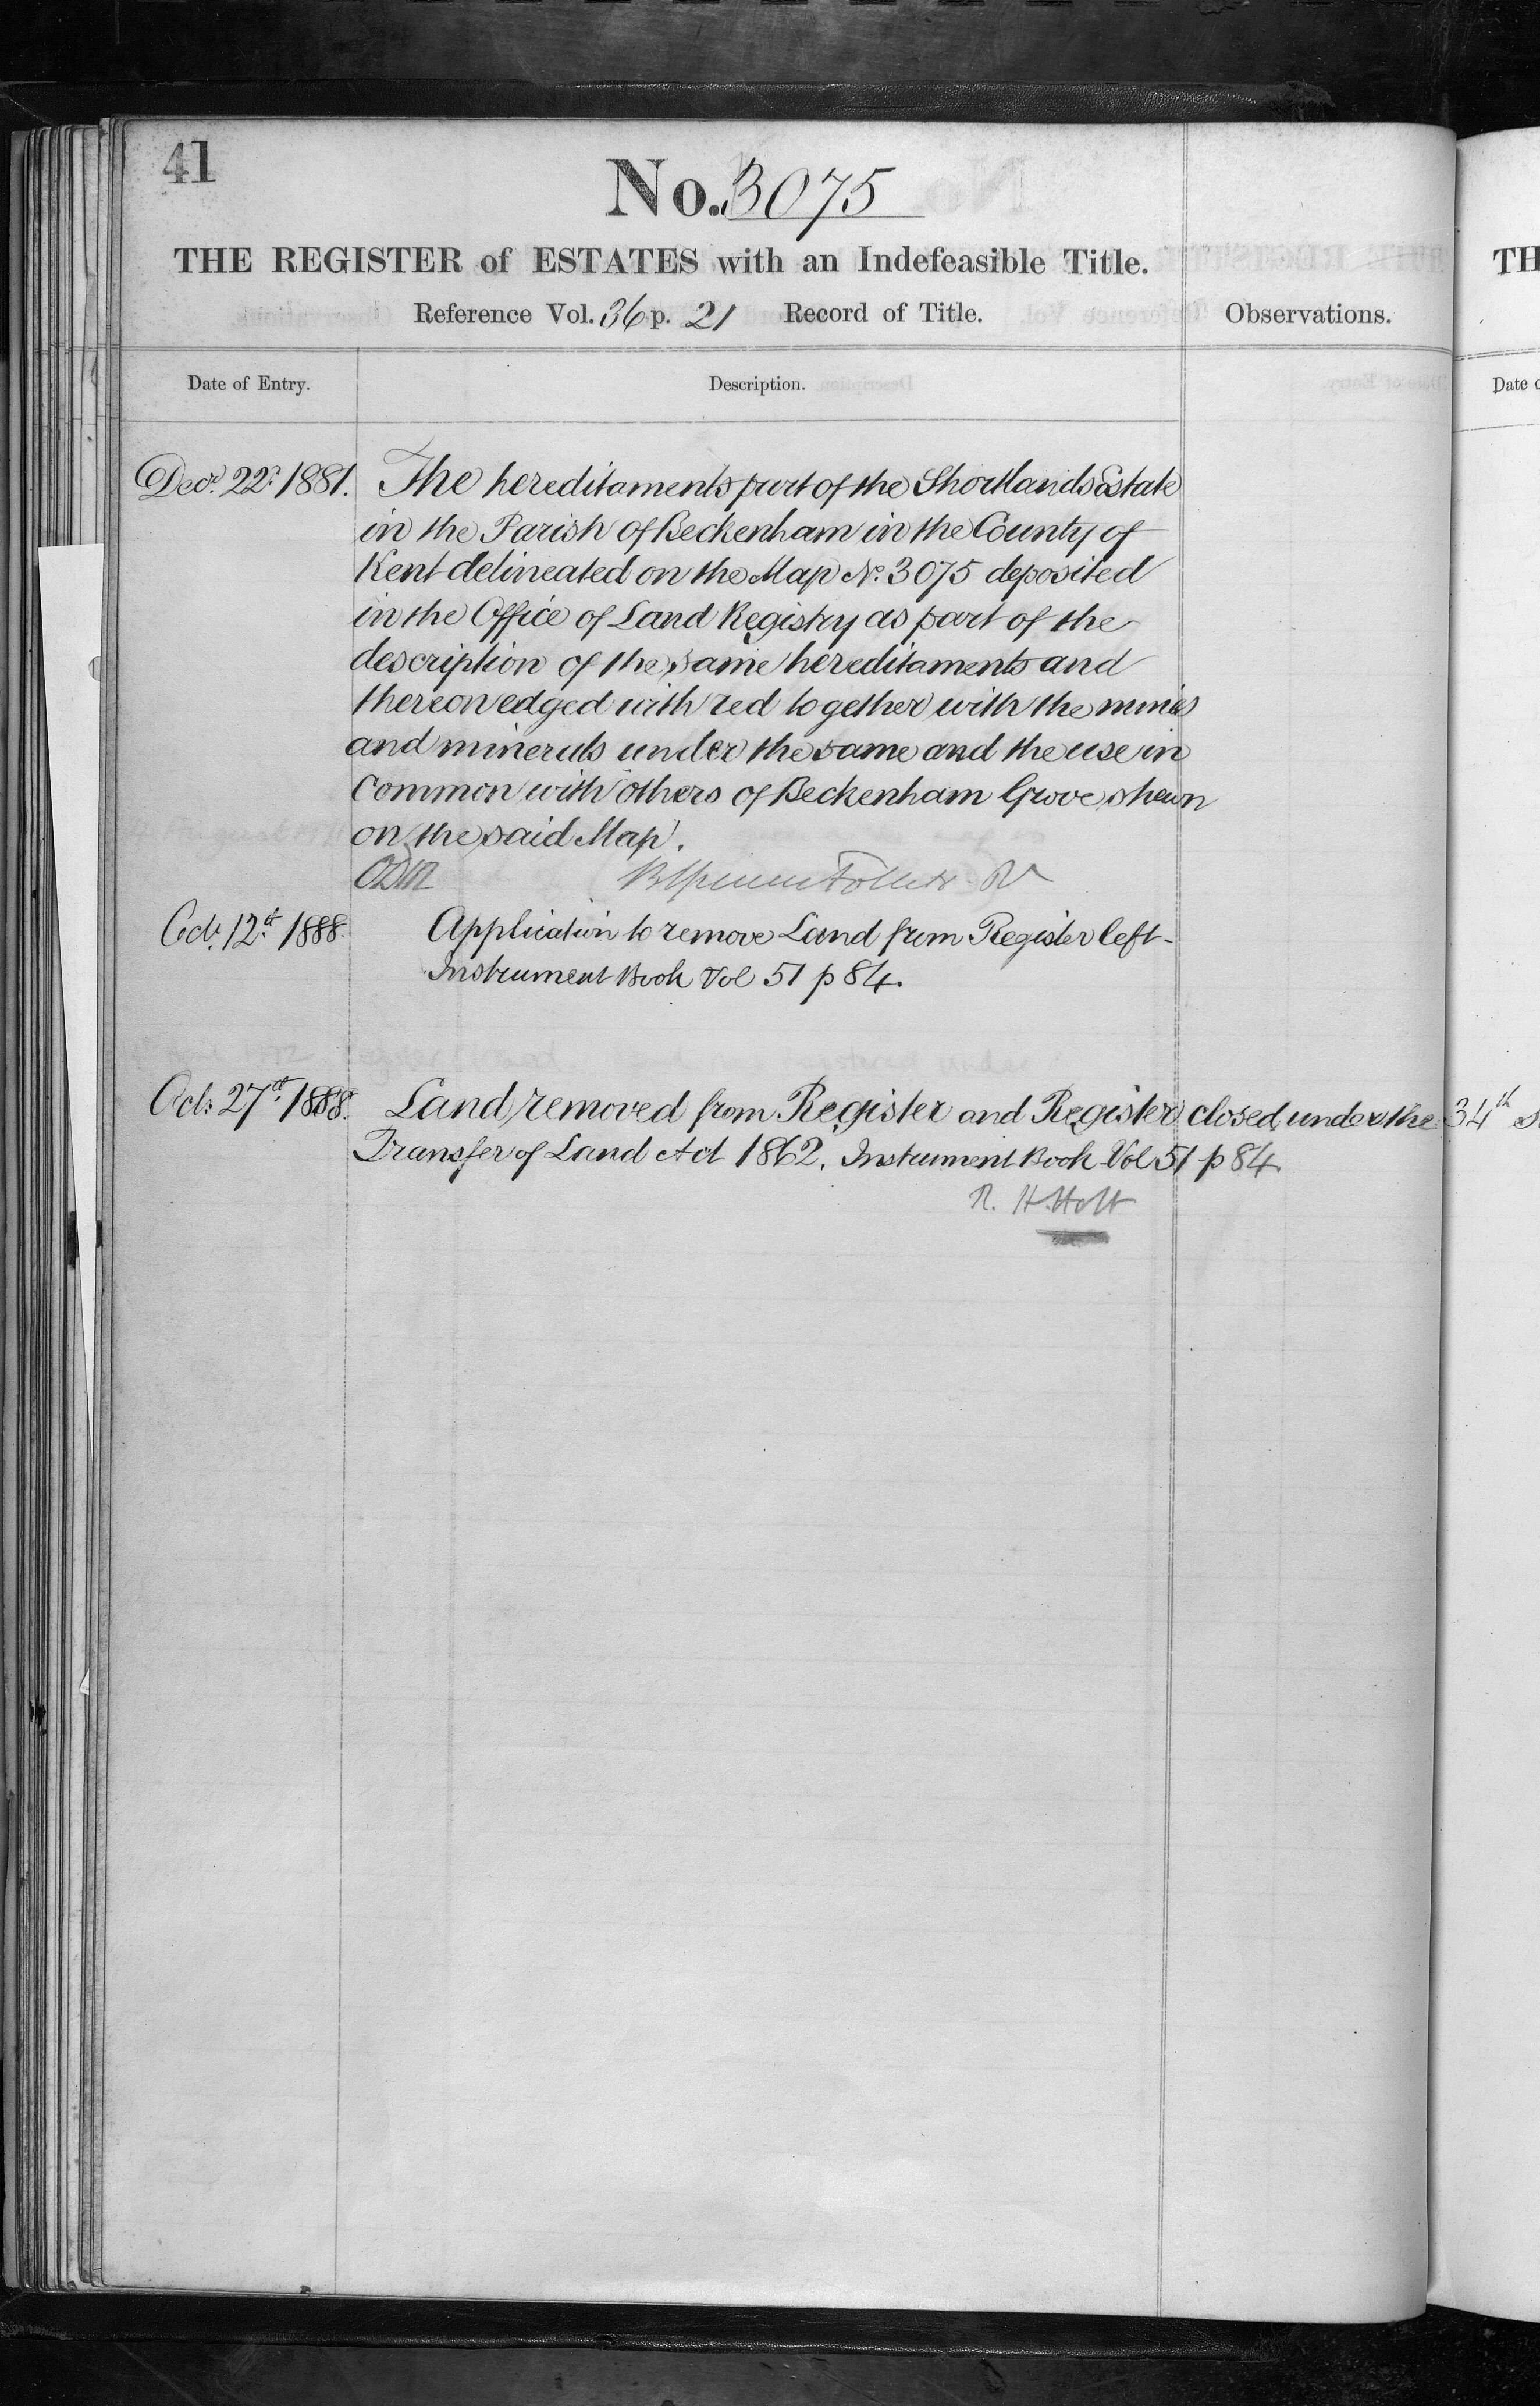 41
No. 3075
THE REGISTER of ESTATES with an Indefeasible Title.
Reference Vol. 36 p. 21 Record of Title.
Observations.
Date of Entry.
Description.
Decr. 22d 1881. The hereditaments part of the Shortlands Estate
in the Parish of Beckenham in the County of
Kent delineated on the Map No. 3075 deposited
in the Office of Land Registry as part of the
description of the same hereditaments and
thereon edged with red together with the mines
and minerals under the same and the use in
Common with others of Beckenham Grove shewn
on the said Map.
Oct. 12th 1888. Application to remove Land from Register left-
Instrument Book Vol 51 p 84.
Oct. 27th 1888. Land removed from Register and Register closed under the 34th
Transfer of Land Act 1862. Instrument Book Vol 51 p 84
R. H. Holt
TH
Date